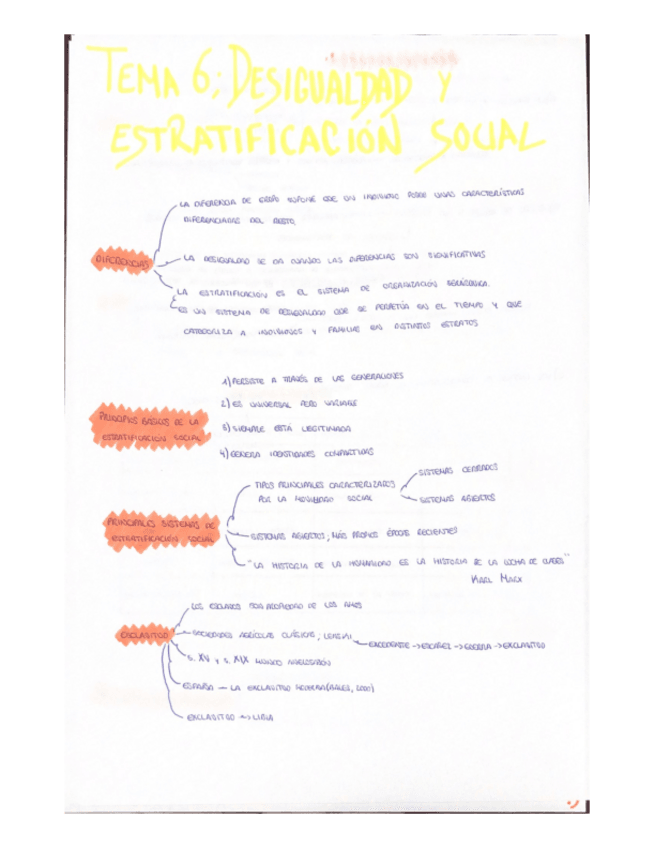 TEMA 6; DESIGUALDAD Y
ESTRATIFICACIÓN SOCIAL
LA DIFERENCIA DE GRUPO SUPONE QUE UN INDIVIDUO POSEE UNAS CARACTERÍSTICAS
DIFERENCIADAS DEL RESTO.
DIFERENCIAS
LA DESIGUALDAD SE DA CUANDO LAS DIFERENCIAS SON SIGNIFICATIVAS
LA ESTRATIFICACIÓN ES EL SISTEMA DE ORGANIZACIÓN JERÁRQUICA.
ES UN SISTEMA DE DESIGUALDAD QUE SE PERPETÚA EN EL TIEMPO Y QUE
CATEGORIZA A INDIVIDUOS Y FAMILIAS EN DISTINTOS ESTRATOS
PRINCIPIOS BÁSICOS DE LA
ESTRATIFICACIÓN SOCIAL
1) PERSISTE A TRAVÉS DE LAS GENERACIONES
2) ES UNIVERSAL PERO VARIABLE
3) SIEMPRE ESTÁ LEGITIMADA
4) GENERA IDENTIDADES COMPARTIDAS
PRINCIPALES SISTEMAS DE
ESTRATIFICACIÓN SOCIAL
TIPOS PRINCIPALES CARACTERIZADOS
POR LA MOVILIDAD SOCIAL
SISTEMAS CERRADOS
SISTEMAS ABIERTOS
SISTEMAS ABIERTOS, MÁS PROPIOS ÉPOCAS RECIENTES
"LA HISTORIA DE LA HUMANIDAD ES LA HISTORIA DE LA LUCHA DE CLASES"
KARL MARX
ESCLAVITUD
LOS ESCLAVOS SON PROPIEDAD DE LOS AMOS
SOCIEDADES AGRÍCOLAS CLÁSICAS; LENSKI
EXCEDENTE → ESCASEZ → GUERRA → ESCLAVITUD
S. XV Y S. XIX MUNDO
ESPAÑA — LA ESCLAVITUD MODERNA (BALES, 2000)
ESCLAVITUD → LIBIA